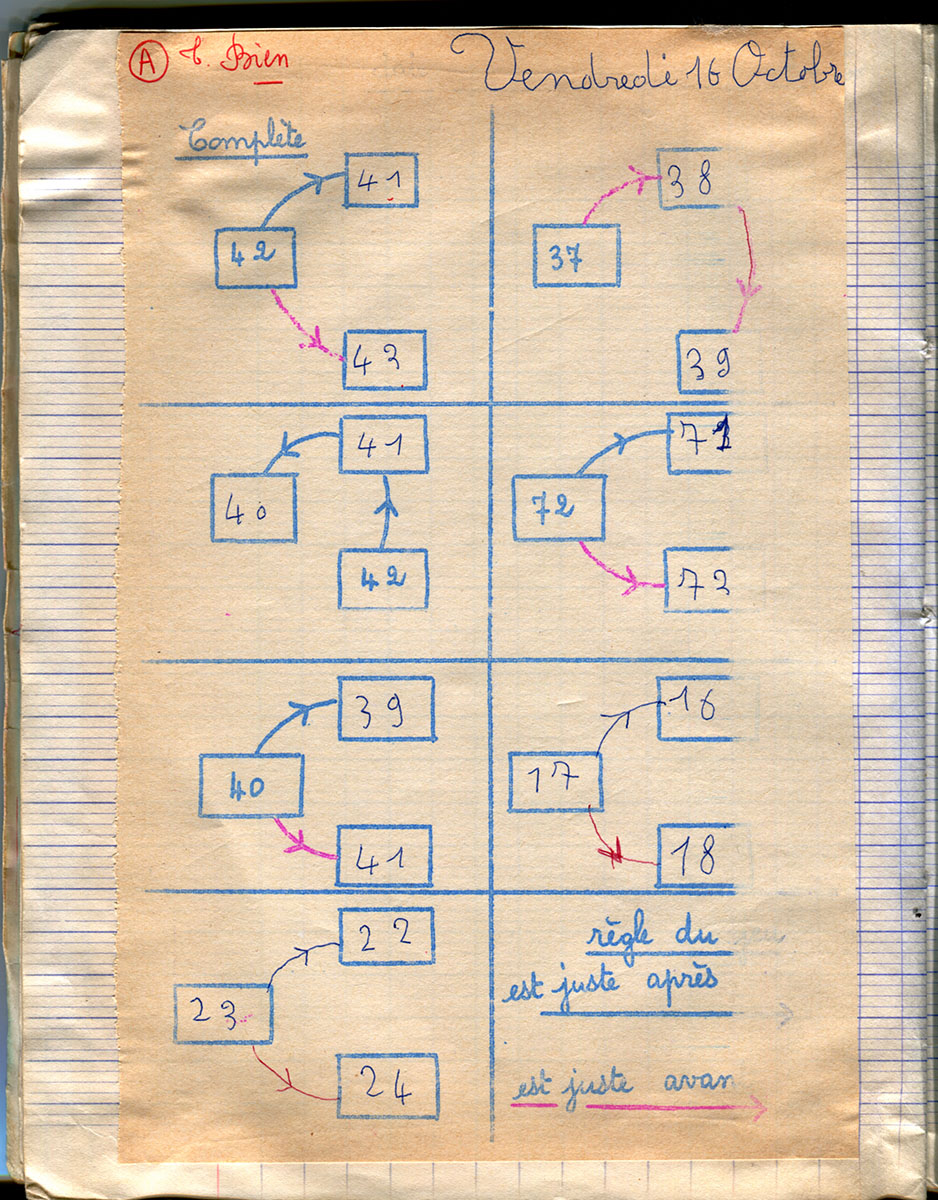 A T. Bien
Vendredi 16 Octobre
Complète
41
42
43
38
37
39
41
40
42
71
72
73
39
40
41
16
17
18
22
23
24
règle du
est juste après
est juste avan